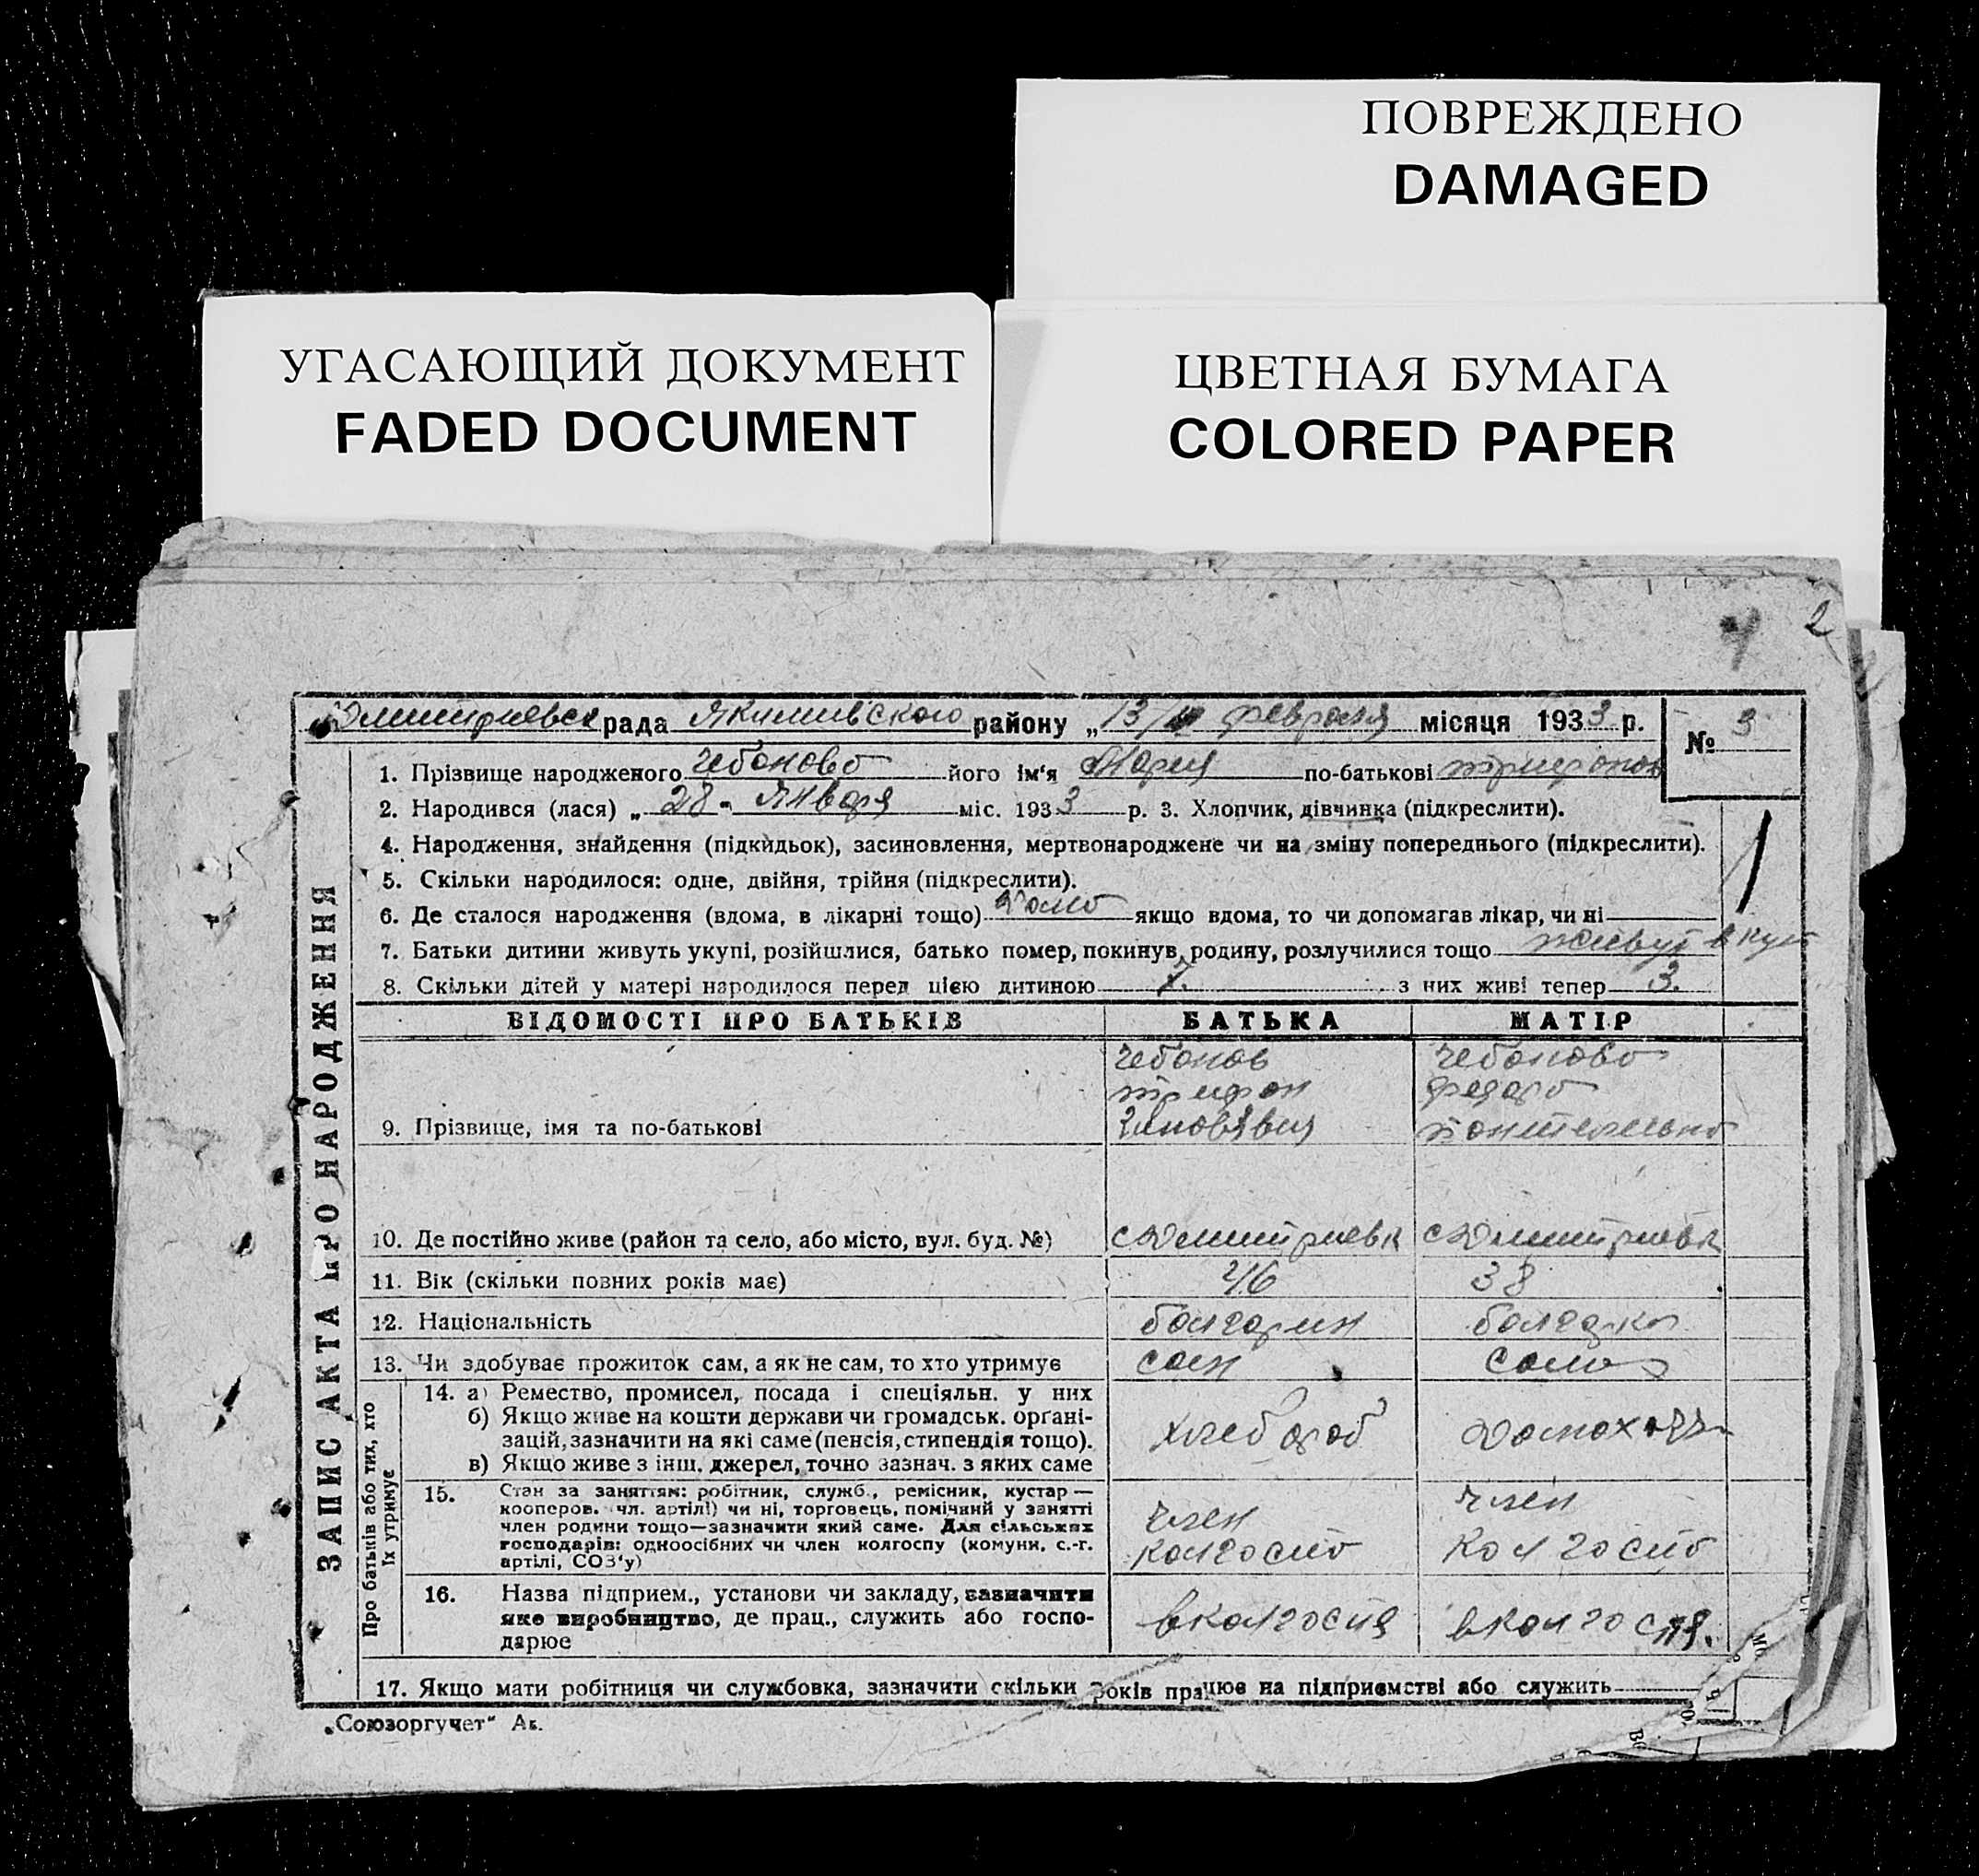 ПОВРЕЖДЕНО
DAMAGED
УГАСАЮЩИЙ ДОКУМЕНТ
FADED DOCUMENT
ЦВЕТНАЯ БУМАГА
COLORED PAPER
2
Дмитриевск рада Якимивского району „13/ февраля місяця 1933 р.
№ 3
1. Прізвище народженого Чебанова його ім'я Мария по-батькові Трифонов
2. Народився (лася) „28" Января міс. 1933 р. 3. Хлопчик, дівчинка (підкреслити).
4. Народження, знайдення (підкидьок), засиновлення, мертвонароджене чи на зміну попереднього (підкреслити).
5. Скільки народилося: одне, двійня, трійня (підкреслити).
6. Де сталося народження (вдома, в лікарні тощо) Дома якщо вдома, то чи допомагав лікар, чи ні
7. Батьки дитини живуть укупі, розійшлися, батько помер, покинув родину, розлучилися тощо живут вкупі
8. Скільки дітей у матері народилося перед цією дитиною 7. з них живі тепер 3.
ЗАПИС АКТА ПРО НАРОДЖЕННЯ
ВІДОМОСТІ ПРО БАТЬКІВ БАТЬКА МАТІР
Чебанов Чебанова
Трифон Федора
9. Прізвище, імя та по-батькові
10. Де постійно живе (район та село, або місто, вул. буд. №) с Дмитриевк с Дмитриевк
11. Вік (скільки повних років має) 46 38
12. Національність болгарин болгарка
13. Чи здобуває прожиток сам, а як не сам, то хто утримує сам сама
Про батьків або тих, хто
їх утримує
14. а) Ремество, промисел, посада і спеціяльн. у них
б) Якщо живе на кошти держави чи громадськ. орґані-
зацій, зазначити на які саме (пенсія, стипендія тощо).
в) Якщо живе з інш. джерел, точно зазнач. з яких саме
хлебороб
15. Стан за заняттям: робітник, служб., ремісник, кустар —
кооперов. чл. артілі) чи ні, торговець, помічний у занятті
член родини тощо—зазначити який саме. Для сільських
господарів: одноосібних чи член колгоспу (комуни, с.-г.
артілі, СОЗ'у)
член член
колгоспа колгоспа
16. Назва підприєм., установи чи закладу, зазначити
яке виробництво, де прац., служить або госпо-
дарює
вколгоспя вколгоспя.
17. Якщо мати робітниця чи службовка, зазначити скільки років працює на підприємстві або служить
„Союзоргучет"